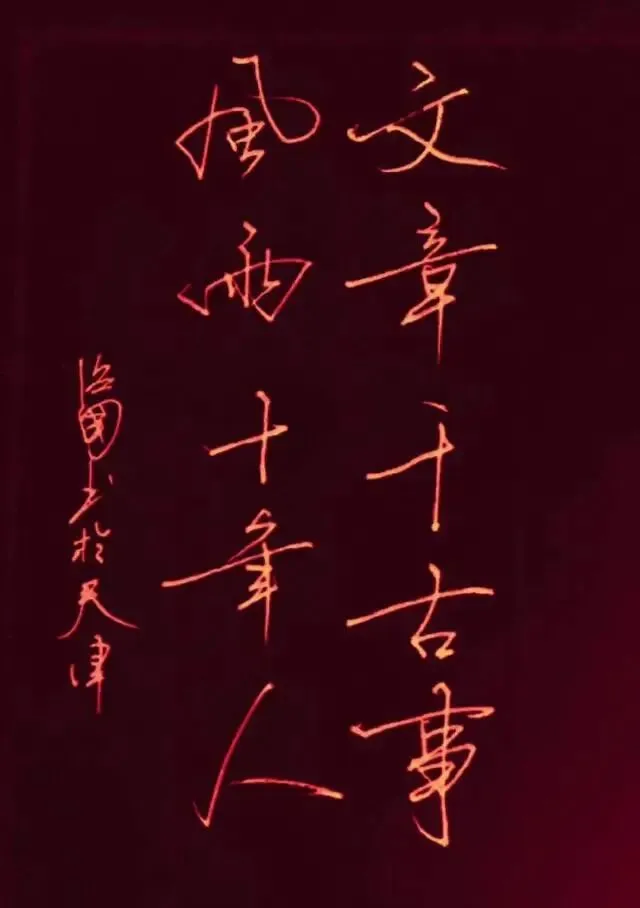 文章千古事
風雨十年人
書於天津